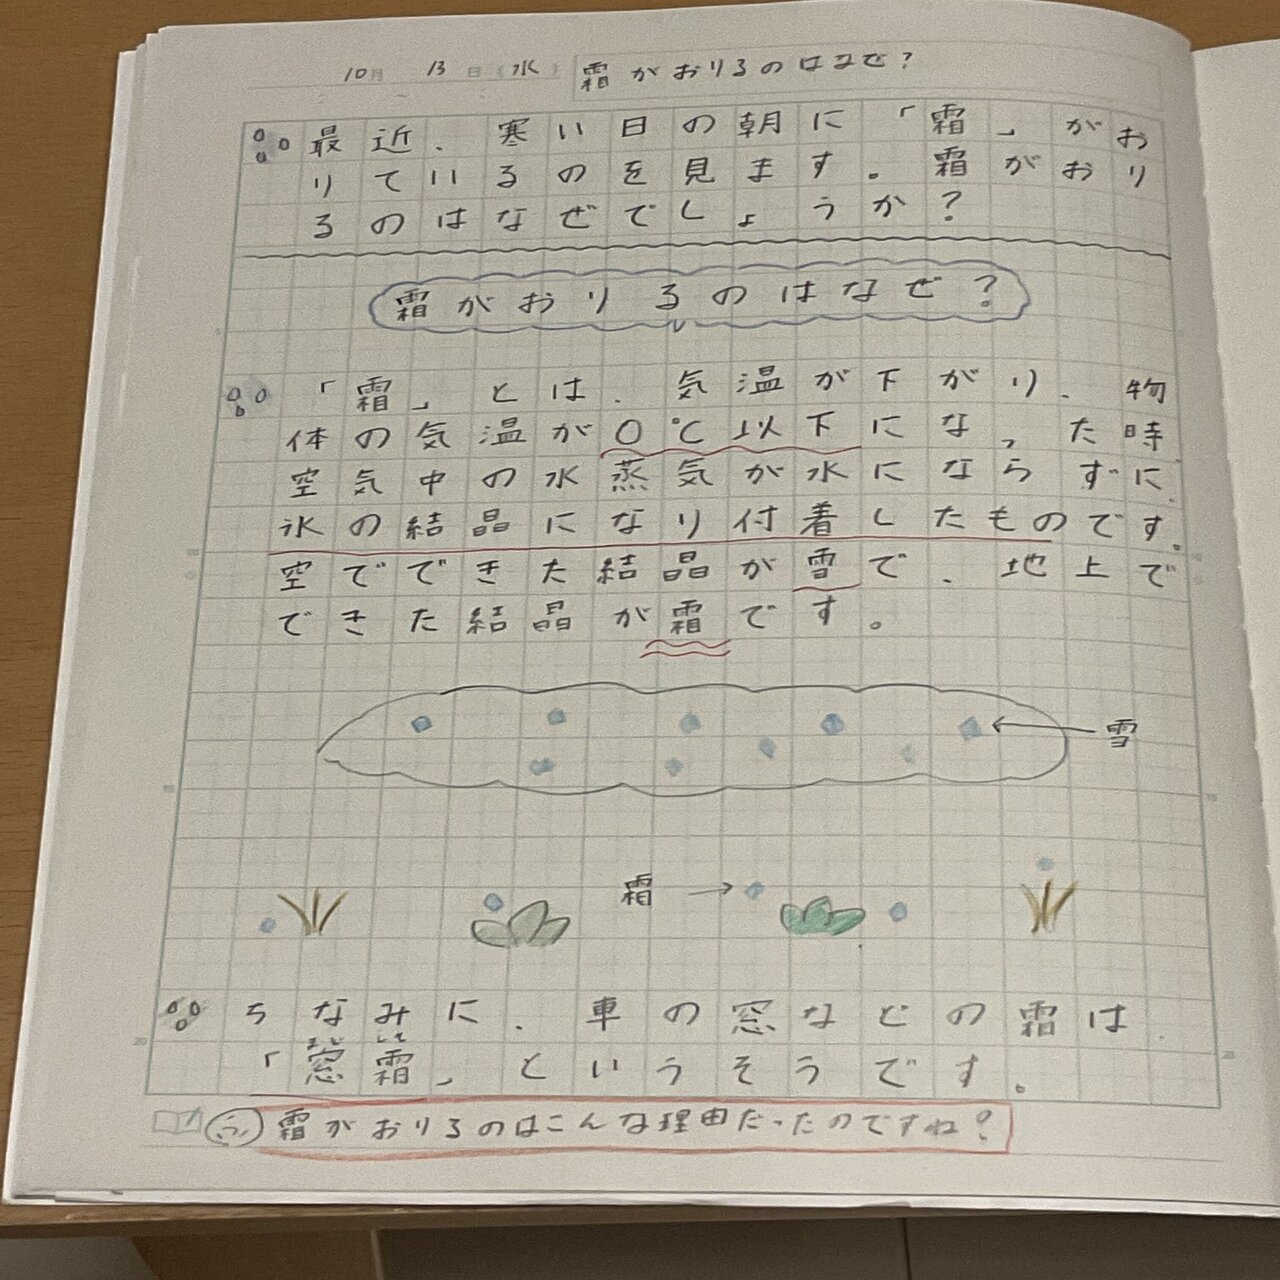 10月 13日(水) 霜がおりるのはなぜ?
最近、寒い日の朝に「霜」がお
りているのを見ます。霜がおり
るのはなぜでしょうか?
霜がおりるのはなぜ?
「霜」とは、気温が下がり、物
体の気温が0℃以下になった時、
空気中の水蒸気が水にならずに、
氷の結晶になり付着したものです。
空でできた結晶が雪で、地上で
できた結晶が霜です。
雪
霜
ちなみに、車の窓などの霜は、
まど しも
「窓霜」というそうです。
霜がおりるのはこんな理由だったのですね?